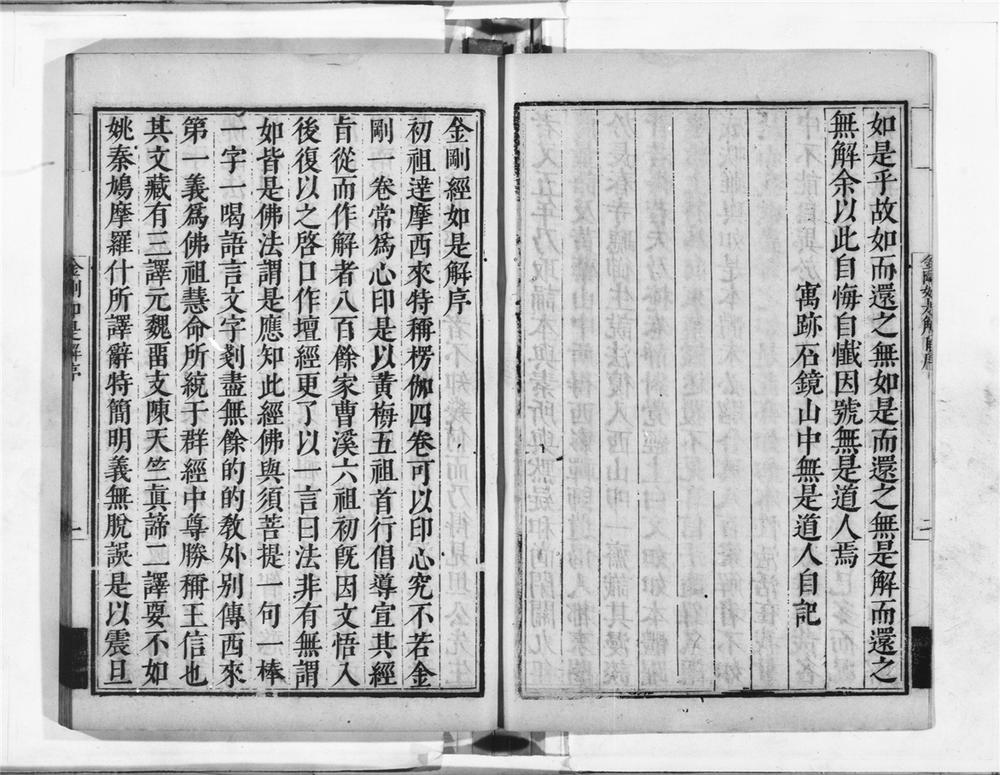 如是乎故如而還之無如是而還之無是解而還之
無解余以此自悔自懺因號無是道人焉
寓跡石鏡山中無是道人自記
金剛經如是解序
初祖達摩西來特稱楞伽四卷可以印心究不若金
剛一卷常爲心印是以黃梅五祖首行倡導宣其經
旨從而作解者八百餘家曹溪六祖初旣因文悟入
後復以之啓口作壇經更了以一言曰法非有無謂
如皆是佛法謂是應知此經佛與須菩提一句一棒
一字一喝語言文字剗盡無餘的的敎外别傳西來
第一義爲佛祖慧命所統于群經中尊勝稱王信也
其文藏有三譯元魏畱支陳天竺眞諦二譯要不如
姚秦鳩摩羅什所譯辭特簡明義無脫誤是以震旦
金剛如是解序
一